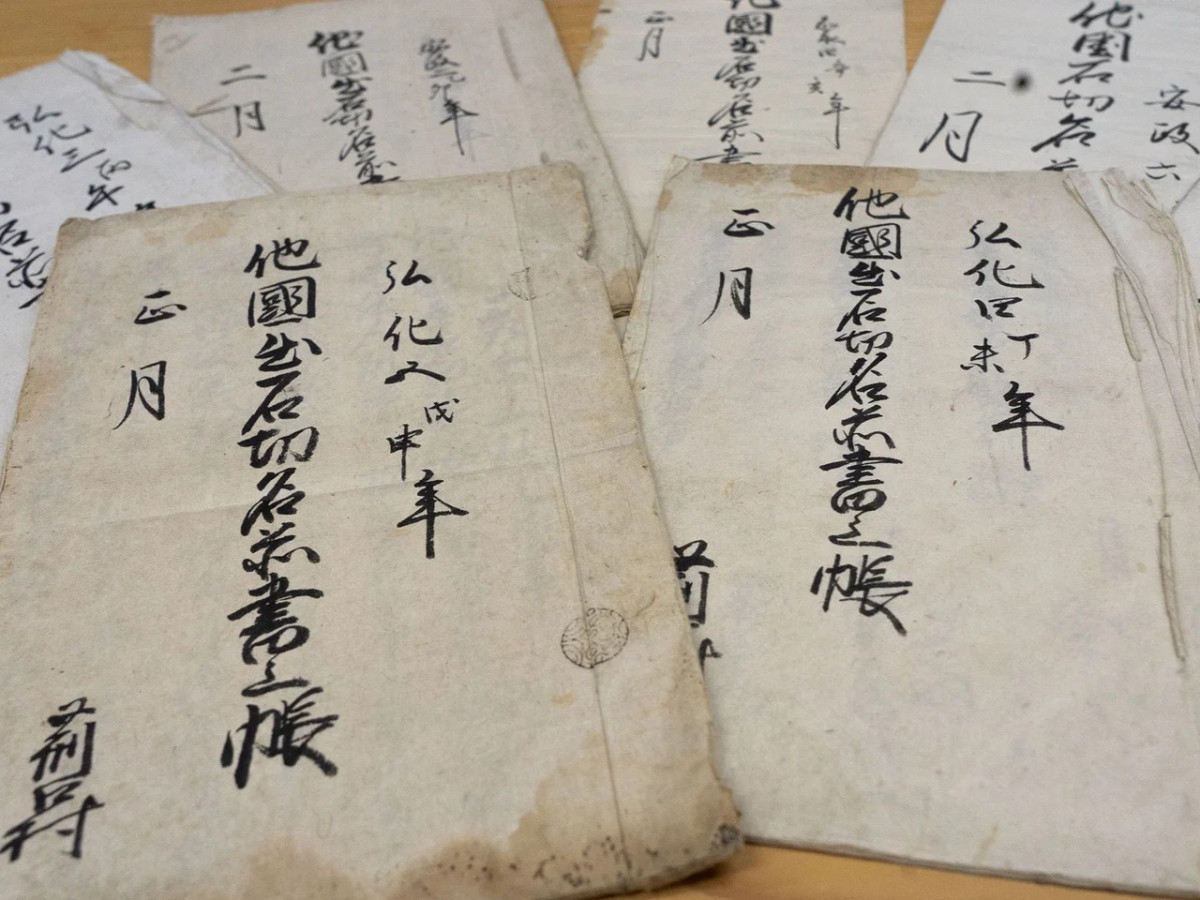 弘化三丙午年
安政二卯年
他國出石切名前
二月
嘉永四辛亥年
他國出石切名前書
正月
安政六
他国石切名
二月
弘化五戊申年
他國出石切名前書上帳
正月
荊口村
弘化四丁未年
他國出石切名前書上帳
正月